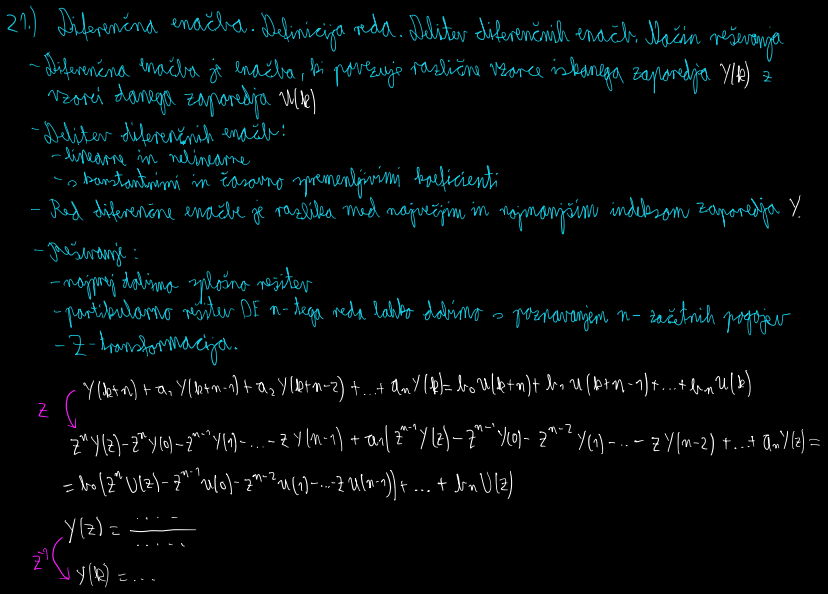 21.) Diferenčna enačba. Definicija reda. Delitev diferenčnih enačb. Način reševanja
- Diferenčna enačba je enačba, ki povezuje različne vzorce iskanega zaporedja Y(k) z
vzorci danega zaporedja U(k)
- Delitev diferenčnih enačb:
- linearne in nelinearne
- s konstantnimi in časovno spremenljivimi koeficienti
- Red diferenčne enačbe je razlika med največjim in najmanjšim indeksom zaporedja Y.
- Reševanje:
- najprej dobimo splošno rešitev
- partikularno rešitev DE n-tega reda lahko dobimo s poznavanjem n-začetnih pogojev
- Z-transformacija.
Y(k+n) + a₁ Y(k+n-1) + a₂ Y(k+n-2) + ... + aₙ Y(k) = b₀ U(k+n) + b₁ U(k+n-1) + ... + bₙ U(k)
Z
zⁿ Y(z) - zⁿ Y(0) - zⁿ⁻¹ Y(1) - ... - z Y(n-1) + a₁(zⁿ⁻¹ Y(z) - zⁿ⁻¹ Y(0) - zⁿ⁻² Y(1) - ... - z Y(n-2) + ... + aₙ Y(z) =
= b₀(zⁿ U(z) - zⁿ⁻¹ U(0) - zⁿ⁻² U(1) - ... - z U(n-1)) + ... + bₙ U(z)
Y(z) = ..... / .....
Z⁻¹
Y(k) = ...